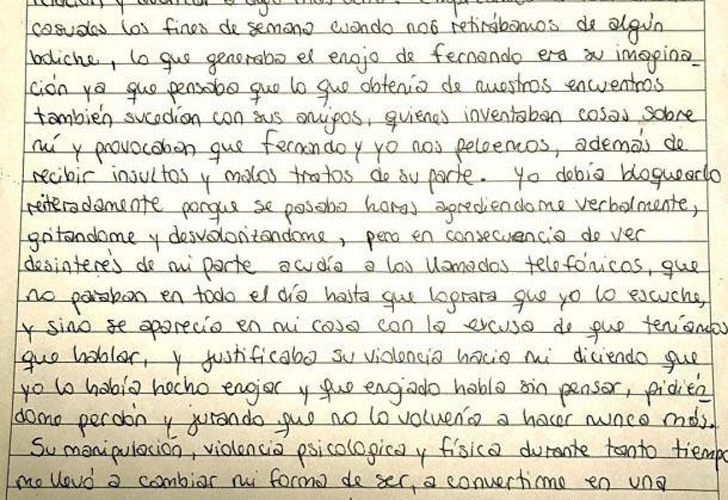 casuales los fines de semana cuando nos retirábamos de algún
boliche, lo que generaba el enojo de fernando era su imagina_
ción ya que pensaba que lo que obtenía de nuestros encuentros
también sucedían con sus amigos, quienes inventaban cosas sobre
mí y provocaban que fernando y yo nos peleemos, además de
recibir insultos y malos tratos de su parte. Yo debía bloquearlo
reiteradamente porque se pasaba horas agrediendome verbalmente,
gritandome y desvalorizandome, pero en consecuencia de ver
desinterés de mi parte acudía a los llamados telefónicos, que
no paraban en todo el día hasta que lograra que yo lo escuche,
y sino se aparecía en mi casa con la excusa de que teníamos
que hablar, y justificaba su violencia hacia mi diciendo que
yo lo había hecho enojar y que enojado habla sin pensar, pidién_
dome perdón y jurando que no lo volvería a hacer nunca más.
Su manipulación, violencia psicologica y física durante tanto tiempo
me llevó a cambiar mi forma de ser, a convertirme en una